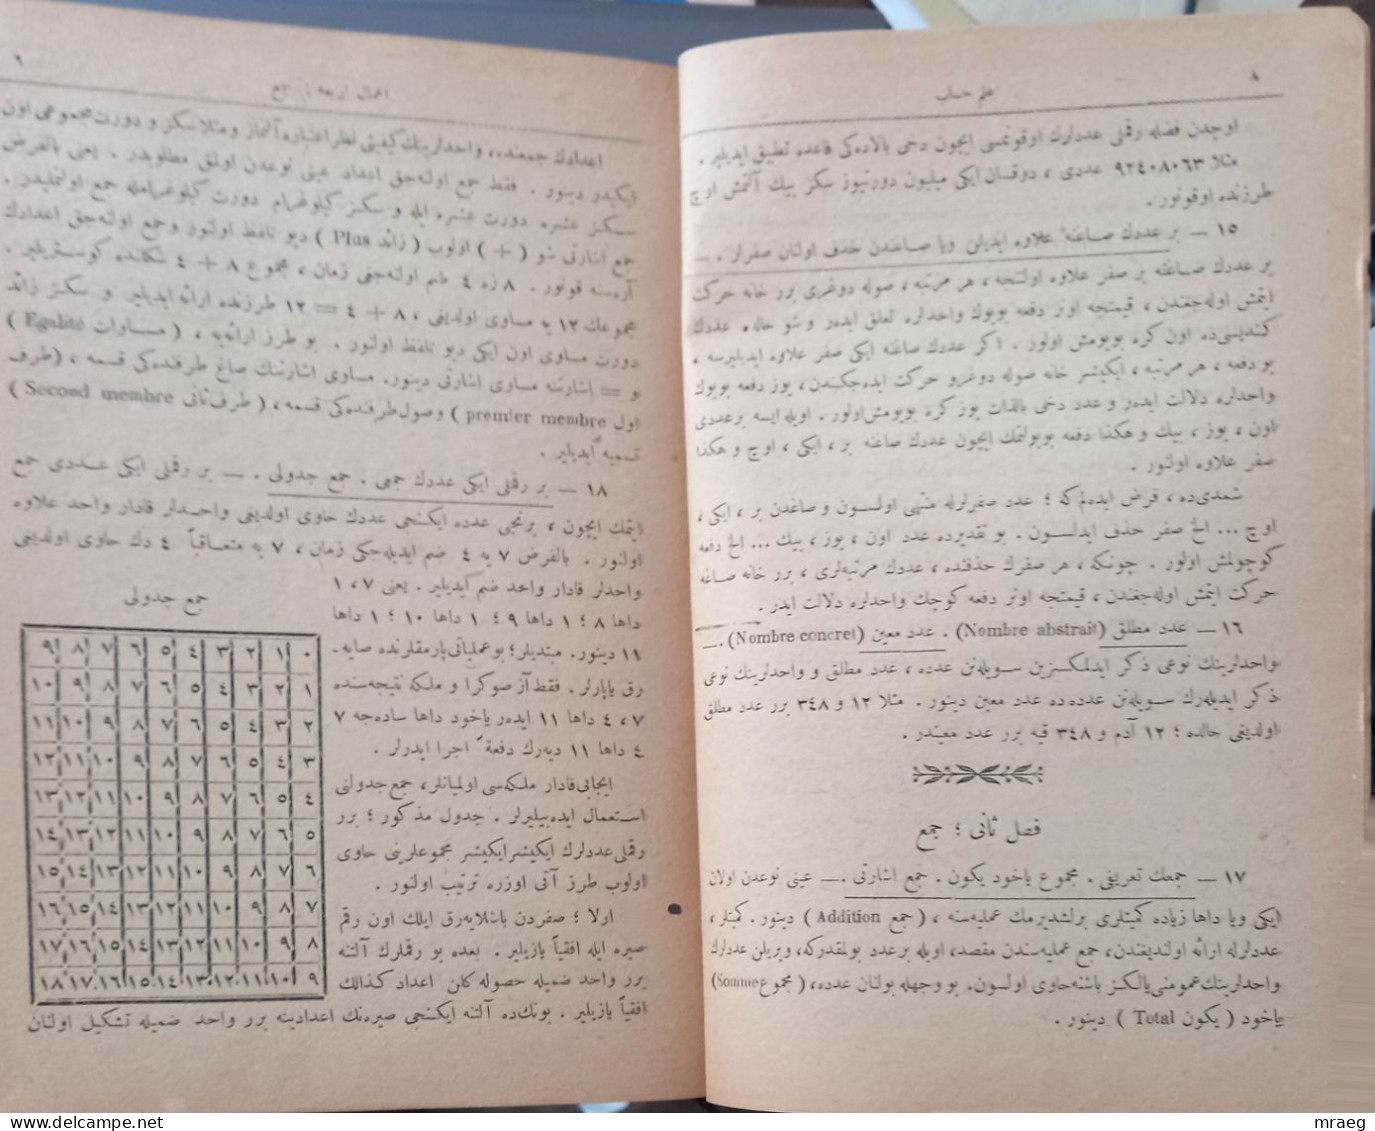 ٨
علم حساب
اوچدن فضله رقملی عددلرك اوقونمسی ایچون دخی بالاده‌كی قاعده تطبیق ایدیلیر .
مثلا ٩٢٤٠٨٠٦٣ عددی ، دوقسان ایكی میلیون دورتیوز سكز بیك آلتمش اوچ
طرزنده اوقونور .
١٥ — بر عددك صاغنه علاوه ایدیلن ویا صاغندن حذف اولنان صفرلر . —
بر عددك صاغنه بر صفر علاوه اولنجه ، هر مرتبه ، صوله دوغری برر خانه حركت
ایتمش اوله‌جغندن ، قیمتجه اونر دفعه بویوك واحدلره تعلق ایدەر و شو حالده عددك
كندیسی‌ده اون كره بویومش اولور . اكر عددك صاغنه ایكی صفر علاوه ایدیلیرسه ،
بو دفعه ، هر مرتبه ، ایكیشر خانه صوله دوغرو حركت ایده‌جكندن ، یوز دفعه بویوك
واحدلره دلالت ایدەر و عدد دخی بالذات یوز كره بویومش اولور . اویله ایسه بر عددی
اون ، یوز ، بیك و هكذا دفعه بویولتمك ایچون عددك صاغنه بر ، ایكی ، اوچ و هكذا
صفر علاوه اولنور .
شمدی‌ده ، فرض ایده‌لم كه ؛ عدد صفرلرله منتهی اولسون و صاغدن بر ، ایكی ،
اوچ ... الخ صفر حذف ایدلسون . بو تقدیرده عدد اون ، یوز ، بیك ... الخ دفعه
كوچولمش اولور . چونكه ، هر صفرك حذفنده ، عددك مرتبه‌لری ، برر خانه صاغه
حركت ایتمش اوله‌جغندن ، قیمتجه اونر دفعه كوچك واحدلره دلالت ایدر .
١٦ — عدد مطلق (Nombre abstrait) . عدد معین (Nombre concret) . —
واحدلرینك نوعی ذكر ایدلمكسزین سویله‌نن عدده ، عدد مطلق و واحدلرینك نوعی
ذكر ایدیله‌رك سویله‌نن عدده‌ده عدد معین دینور . مثلا ١٢ و ٣٤٨ برر عدد مطلق
اولدیغی حالده ؛ ١٢ آدم و ٣٤٨ قیه برر عدد معیندر .
فصل ثانی ؛ جمع
١٧ — جمعك تعریفی . مجموع یاخود یكون . جمع اشارتی . — عینی نوعدن اولان
ایكی ویا داها زیاده كمیتلری برلشدیرمك عملیه‌سنه ، (جمع Addition) دینور . كمیتلر ،
عددلرله ارائه اولندیغندن ، جمع عملیه‌سندن مقصد ، اویله بر عدد بولمقدركه ، ویریلن عددلرك
واحدلرینك عمومنی یالكز باشنه حاوی اولسون . بو وجهله بولنان عدده ، (مجموع Somme)
یاخود ( یكون Total ) دینور .
٩
اعمال اربعه : جمع
اعدادك جمعنده ، واحدلرینك كیفیتی نظر اعتباره آلنماز و مثلا سكز و دورت مجموعی اون
ایكیدر دینور . فقط جمع اوله‌جق اعداد عینی نوعدن اولمق مطلوبدر . یعنی بالفرض
سكز عشره دورت عشره ایله و سكز كیلوغرام دورت كیلوغرامله جمع اولنملیدر .
جمع اشارتی شو ( + ) اولوب ( زائد Plus ) دیو تلفظ اولنور وجمع اوله‌جق اعدادك
آره‌سنه قونور . ٨ زه ٤ ضم اوله‌جغی زمان ، مجموع ٨ + ٤ شكلنده كوستریلیر .
مجموعك ١٢ یه مساوی اولدیغی ، ٨ + ٤ = ١٢ طرزنده ارائه ایدیلیر و سكز زائد
دورت مساوی اون ایكی دیو تلفظ اولنور . بو طرز ارائه‌یه ، ( مساوات Egalité )
و = اشارتنه مساوی اشارتی دینور . مساوی اشارتنك صاغ طرفنده‌كی قسمه ، (طرف
اول premier membre ) وصول طرفنده‌كی قسمه ، ( طرف ثانی Second membre )
تسمیه ایدیلیر .
١٨ — بر رقملی ایكی عددك جمعی . جمع جدولی . — بر رقملی ایكی عددی جمع
ایتمك ایچون ، برنجی عدده ایكنجی عددك حاوی اولدیغی واحدلر قادار واحد علاوه
اولنور . بالفرض ٧ یه ٤ ضم ایدیله‌جكی زمان ، ٧ یه متعاقباً ٤ دك حاوی اولدیغی
واحدلر قادار واحد ضم ایدیلیر . یعنی ٧ ، ١
داها ٨ ؛ ١ داها ٩ ؛ ١ داها ١٠ ؛ ١ داها
١١ دینور . مبتدیلر ؛ بو عملیاتی پارمقلرنده صایه‌-
رق یاپارلر . فقط آز صوكرا و ملكه نتیجه‌سنده
٧ ، ٤ داها ١١ ایدەر یاخود داها ساده‌جه ٧
٤ داها ١١ دیه‌رك دفعةً اجرا ایدرلر .
ایجابی قادار ملكه‌سی اولمیانلر ، جمع جدولنی
استعمال ایده‌بیلیرلر . جدول مذكور ؛ برر
رقملی عددلرك ایكیشر ایكیشر مجموعلرینی حاوی
اولوب طرز آتی اوزره ترتیب اولنور .
اولا ؛ صفردن باشلایه‌رق ایلك اون رقم
صیره ایله افقیاً یازیلیر . بعده بو رقملرك آلتنه
برر واحد ضمیله حصوله كلن اعداد كذالك
افقیاً یازیلیر . بونك‌ده آلتنه ایكنجی صیره‌نك اعدادینه برر واحد ضمیله تشكیل اولنان
جمع جدولی
٠ ١ ٢ ٣ ٤ ٥ ٦ ٧ ٨ ٩
١ ٢ ٣ ٤ ٥ ٦ ٧ ٨ ٩ ١٠
٢ ٣ ٤ ٥ ٦ ٧ ٨ ٩ ١٠ ١١
٣ ٤ ٥ ٦ ٧ ٨ ٩ ١٠ ١١ ١٢
٤ ٥ ٦ ٧ ٨ ٩ ١٠ ١١ ١٢ ١٣
٥ ٦ ٧ ٨ ٩ ١٠ ١١ ١٢ ١٣ ١٤
٦ ٧ ٨ ٩ ١٠ ١١ ١٢ ١٣ ١٤ ١٥
٧ ٨ ٩ ١٠ ١١ ١٢ ١٣ ١٤ ١٥ ١٦
٨ ٩ ١٠ ١١ ١٢ ١٣ ١٤ ١٥ ١٦ ١٧
٩ ١٠ ١١ ١٢ ١٣ ١٤ ١٥ ١٦ ١٧ ١٨
mraeg